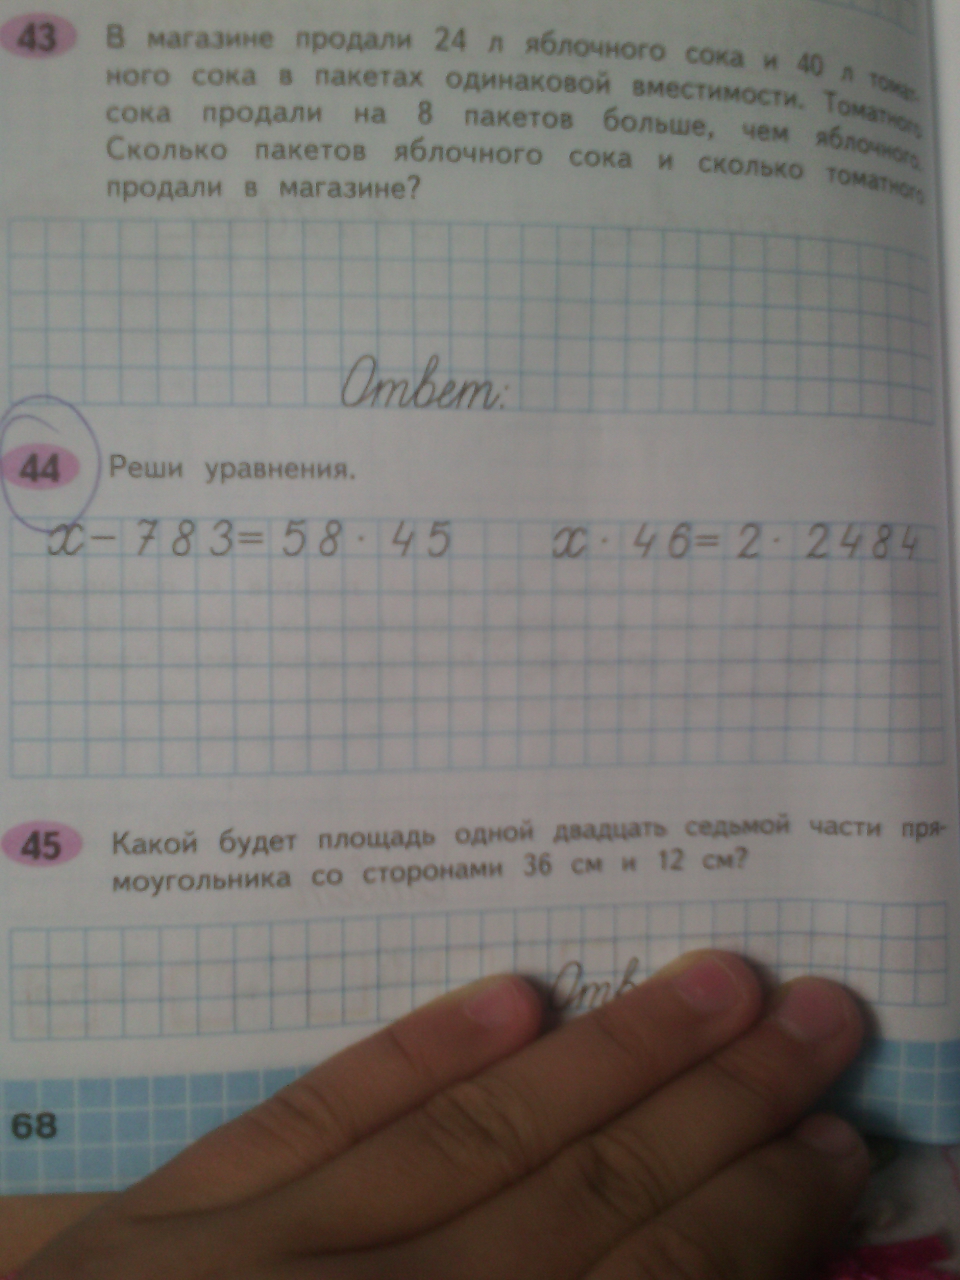 43 В магазине продали 24 л яблочного сока и 40 л томат-
ного сока в пакетах одинаковой вместимости. Томатного
сока продали на 8 пакетов больше, чем яблочного.
Сколько пакетов яблочного сока и сколько томатного
продали в магазине?
Ответ:
44 Реши уравнения.
x - 783 = 58 · 45 x · 46 = 2 · 2484
45 Какой будет площадь одной двадцать седьмой части пря-
моугольника со сторонами 36 см и 12 см?
68